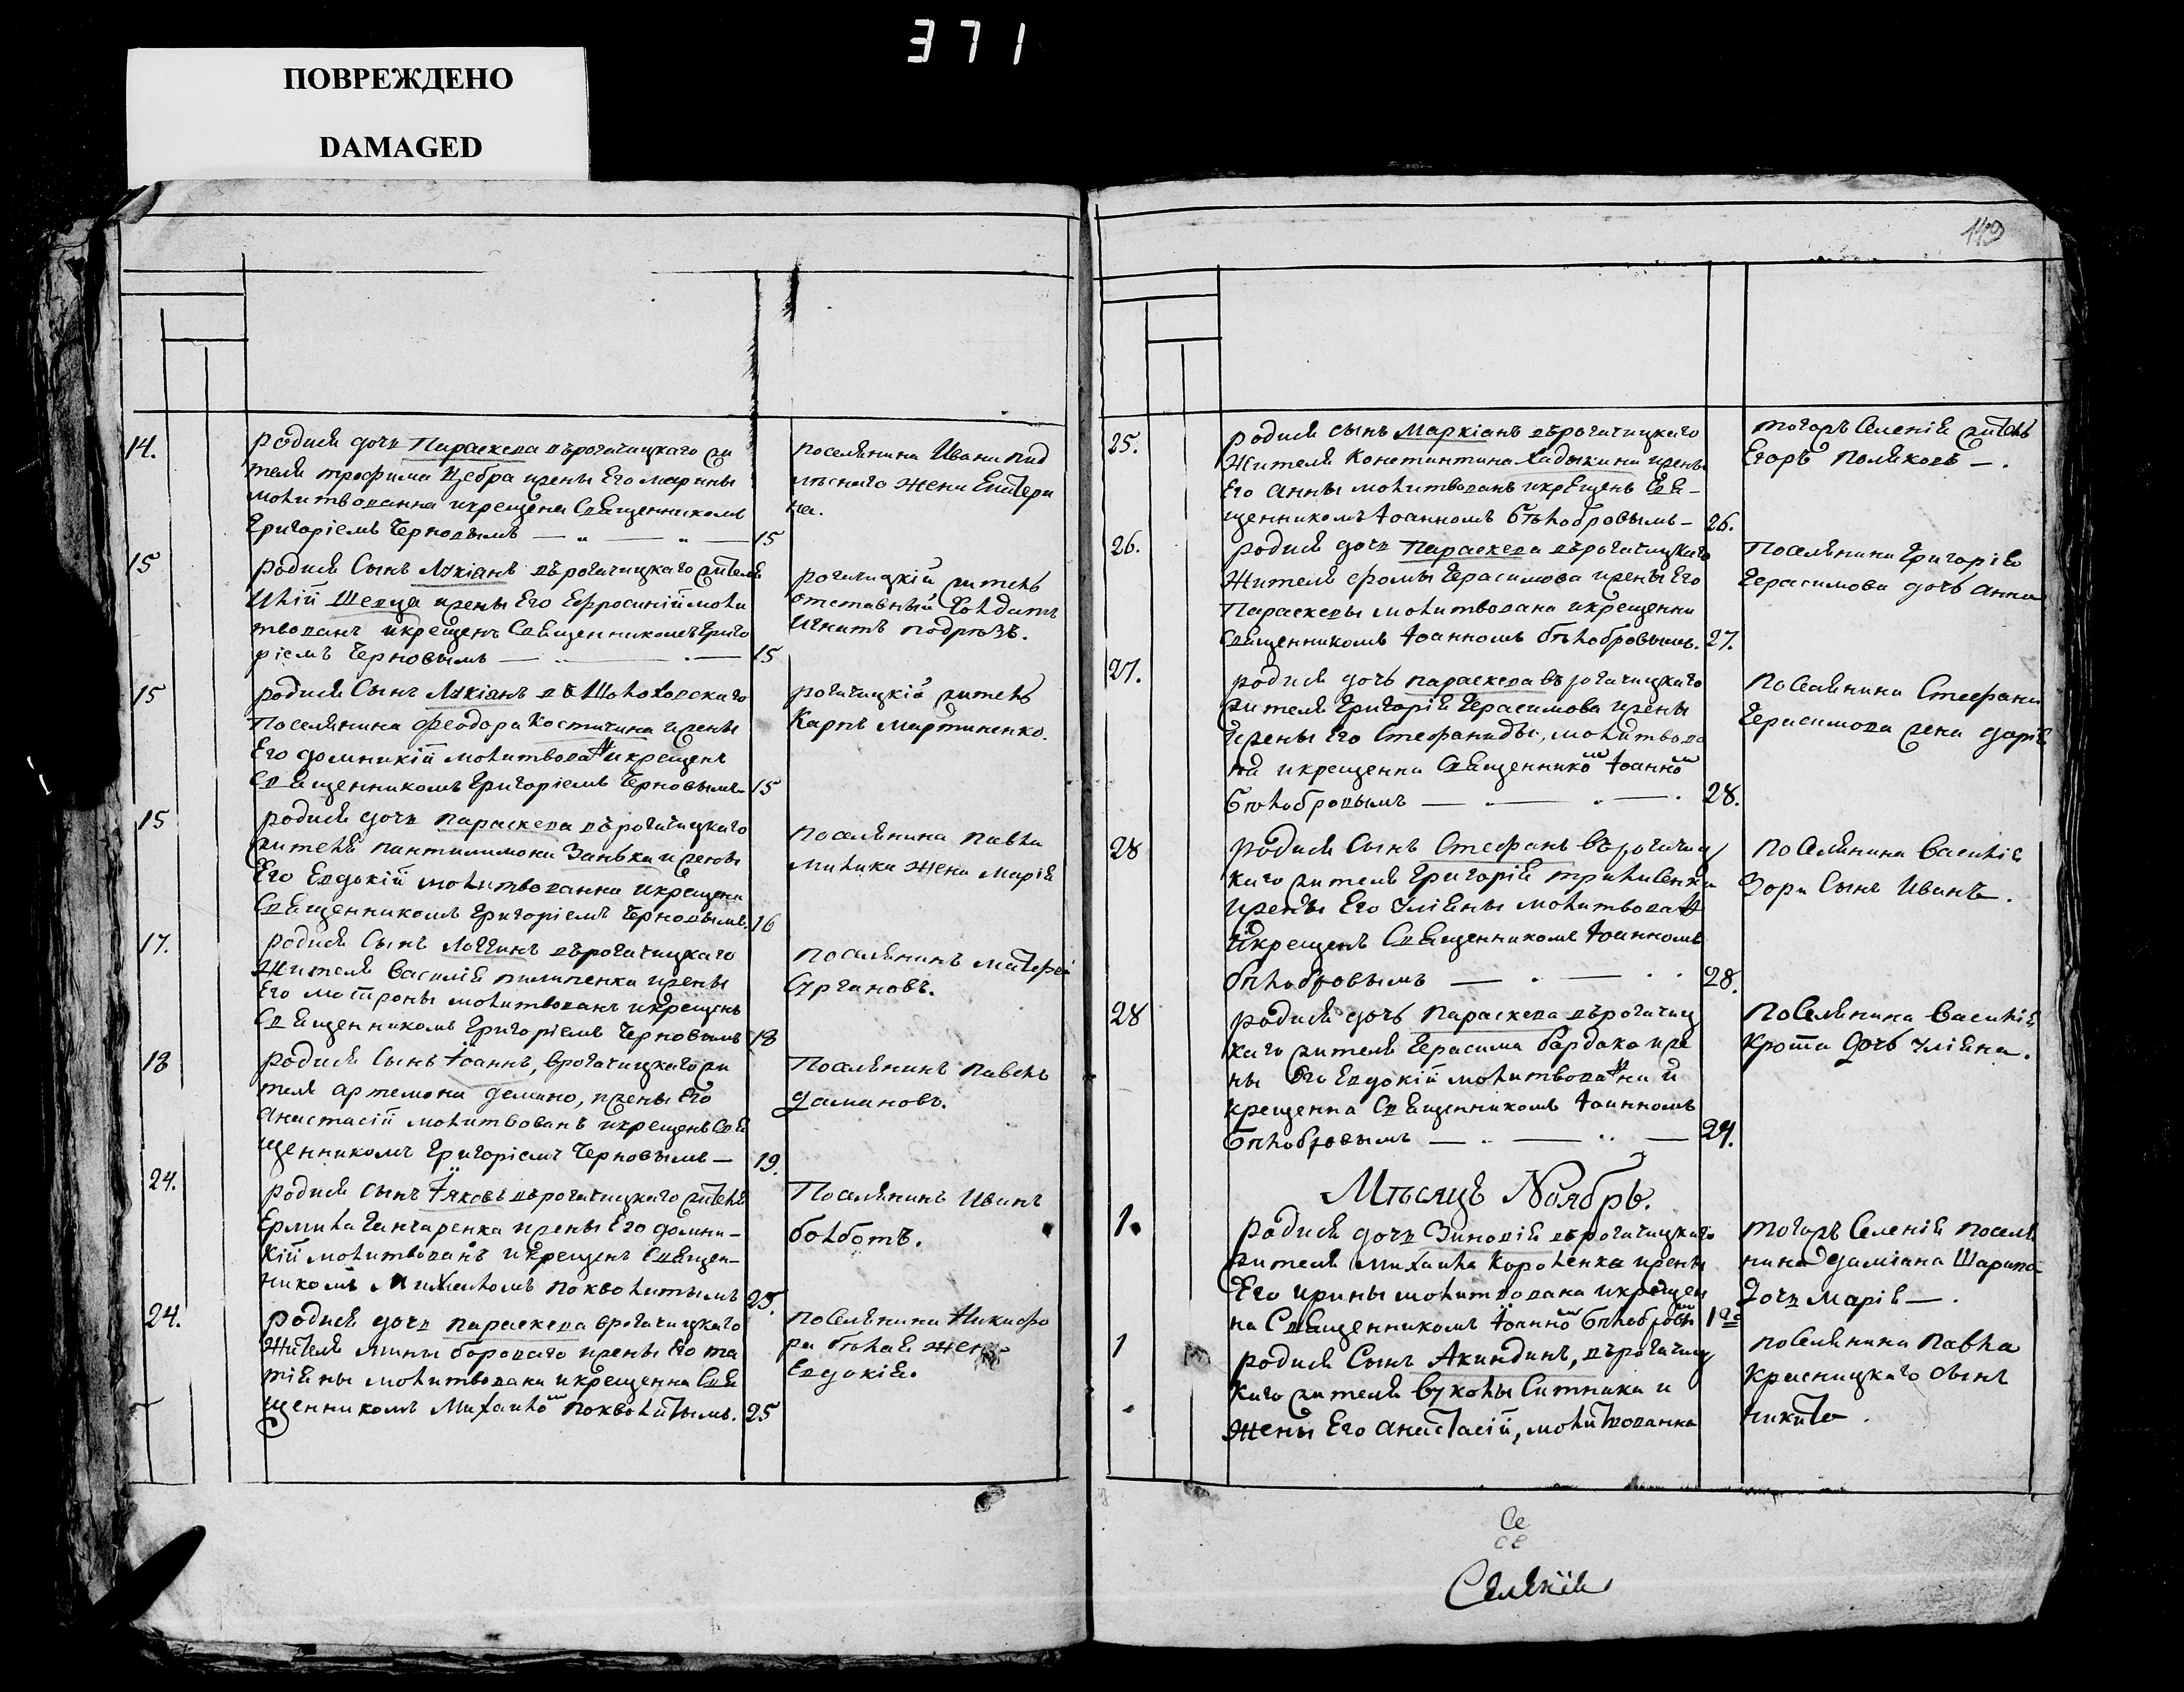 371
ПОВРЕЖДЕНО
DAMAGED
14.
родися дочь Параскева въ рогачицкаго жи
теля трофима Цебра ижены Его Марины
молитвованна икрещена Священникомъ
Григоріемъ Черновымъ — „ — „ — 15
поселянина Ивана пид
лѣснаго жена Екатери
на.
15
родися Сынъ Лукіанъ въ рогачицкаго жителя
Илій Шевца ижены Его Ефросиній моли
твованъ икрещенъ Священникомъ Григо
ріемъ Черновымъ — 15
рогачицкій житель
отставный Солдатъ
Игнатъ подрѣзъ.
15
родися Сынъ Лукіанъ въ Шолоховскаго
Поселянина феодора Костичина ижены
Его домникій молитвованъ икрещенъ
Священникомъ Григоріемъ Черновымъ 15
рогачицкій житель
Карпъ Мартиненко.
15
родися дочь параскева въ рогачицкаго
жителя пантилимона Занька ижены
Его Евдокій молитвованна икрещена
Священникомъ Григоріемъ Черновымъ. 16
поселянина павла
милика жена Марія
17.
родися Сынъ Логгинъ въ рогачицкаго
Жителя Василія пилипенка ижены
Его мотроны молитвованъ икрещенъ
Священникомъ Григоріемъ Черновымъ 18
поселянинъ матфей
Сургановъ.
18
родися Сынъ Іоаннъ, врогачицкаго жи
теля артемона демано, ижены Его
Анастасій молитвованъ икрещенъ Свя
щенникомъ Григоріемъ Черновымъ — 19.
Поселянинъ павелъ
даминовъ.
24.
родися сынъ Іяковъ въ рогачицкаго жителя
Ермила Ганчаренка ижены Его домни-
кій молитвованъ икрещенъ Священ-
никомъ Михаиломъ поквалитымъ 25.
Поселянинъ Иванъ
болботъ.
24.
родися дочь параскева врогачицкаго
Жителя мины бороваго ижены Его та
тіяны молитвована икрещенна Свя
щенникомъ Михаило м поквалитымъ. 25
поселянина Никифо
ра бѣлая жена
Евдокія.
149
25.
родися сынъ Маркіанъ въ рогачицкаго
Жителя Константина Хадыкина ижены
Его анны молитвованъ икрещенъ Свя-
щенникомъ Іоанномъ бѣлобровымъ — 26.
тогоръ Селенія житель
Егоръ поляковъ —.
26.
родися дочь параскева въ рогачицкаго
Жителя фомы Герасимова ижены Его
Параскевы молитвована икрещенна
Священникомъ Іоанномъ бѣлобровымъ. 27.
Поселянина Григорія
Герасимова дочь анна
27.
родися дочь параскева въ рогачицкаго
жителя Григорія Герасимова ижены
ижены Его Стефаниды, молитвова
на икрещенна Священником Іоанном
бѣлобровымъ — 28.
поселянина Стефана
Герасимова жена дарія
28
родися Сынъ Стефанъ въ рогачиц
каго жителя Григорія трилисенка
ижены Его Уліяны молитвованъ
икрещенъ Священникомъ Іоанномъ
бѣлобровымъ — 28.
поселянина Василія
Зори Сынъ Иванъ.
28
родися дочь параскева въ рогачиц
каго жителя Герасима бардака иже
ны Его Евдокій молитвована и
крещенна Священникомъ Іоанномъ
бѣлобровымъ — 29.
поселянина Василія
Крота дочь Уліяна.
Мѣсяцъ Ноябрь.
1.
родися дочь Зиновія въ рогачицкаго
жителя Михаила Короленка ижены
Его ирины молитвована икрещен
на Священникомъ Іоанном бѣлобров 1го
тогоръ Селенія поселя
нина даміана Шарипа
дочь Марія —.
1
родися Сынъ Акиндинъ, въ рогачиц
каго жителя вуколы Ситника и
жены Его анастасій, молитвованна
поселянина павла
Красницкаго сынъ
никита.
Се
се
Селенія